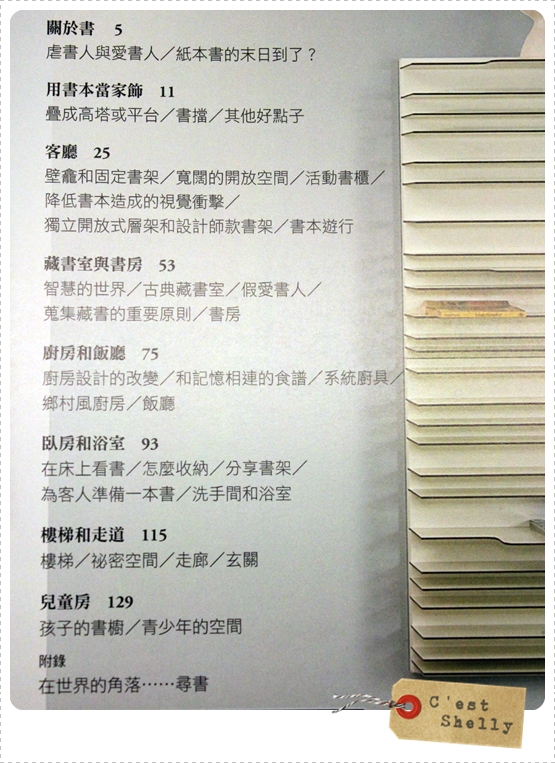 關於書 5
虐書人與愛書人／紙本書的末日到了？
用書本當家飾 11
疊成高塔或平台／書擋／其他好點子
客廳 25
壁龕和固定書架／寬闊的開放空間／活動書櫃／
降低書本造成的視覺衝擊／
獨立開放式層架和設計師款書架／書本遊行
藏書室與書房 53
智慧的世界／古典藏書室／假愛書人／
蒐集藏書的重要原則／書房
廚房和飯廳 75
廚房設計的改變／和記憶相連的食譜／系統廚具／
鄉村風廚房／飯廳
臥房和浴室 93
在床上看書／怎麼收納／分享書架／
為客人準備一本書／洗手間和浴室
樓梯和走道 115
樓梯／祕密空間／走廊／玄關
兒童房 129
孩子的書櫥／青少年的空間
附錄
在世界的角落⋯⋯尋書
C'est
Shelly